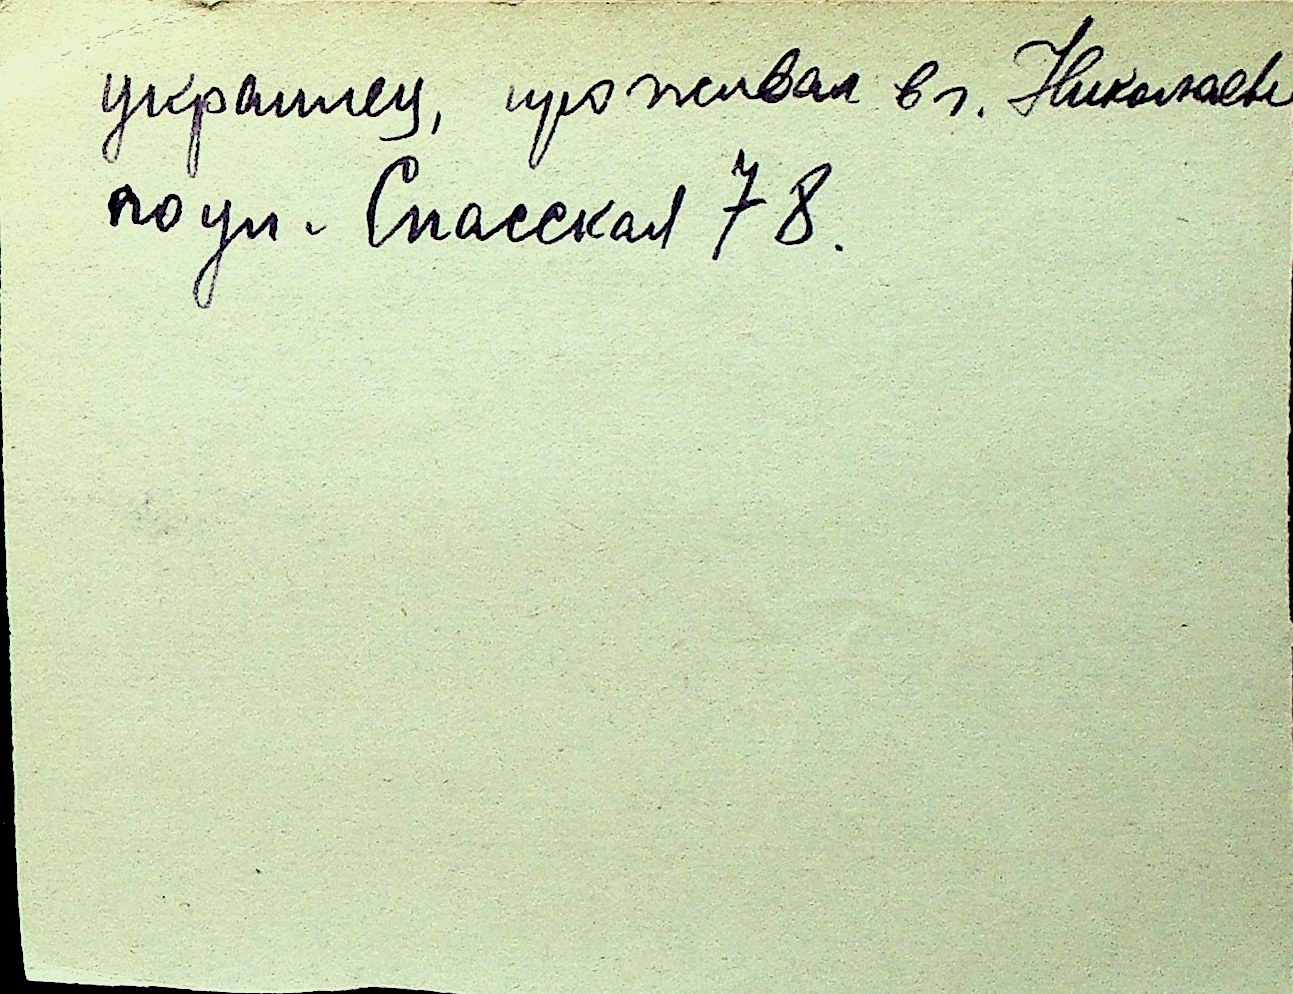 украинец, проживал в г. Николаеве
по ул. Спасская 78.